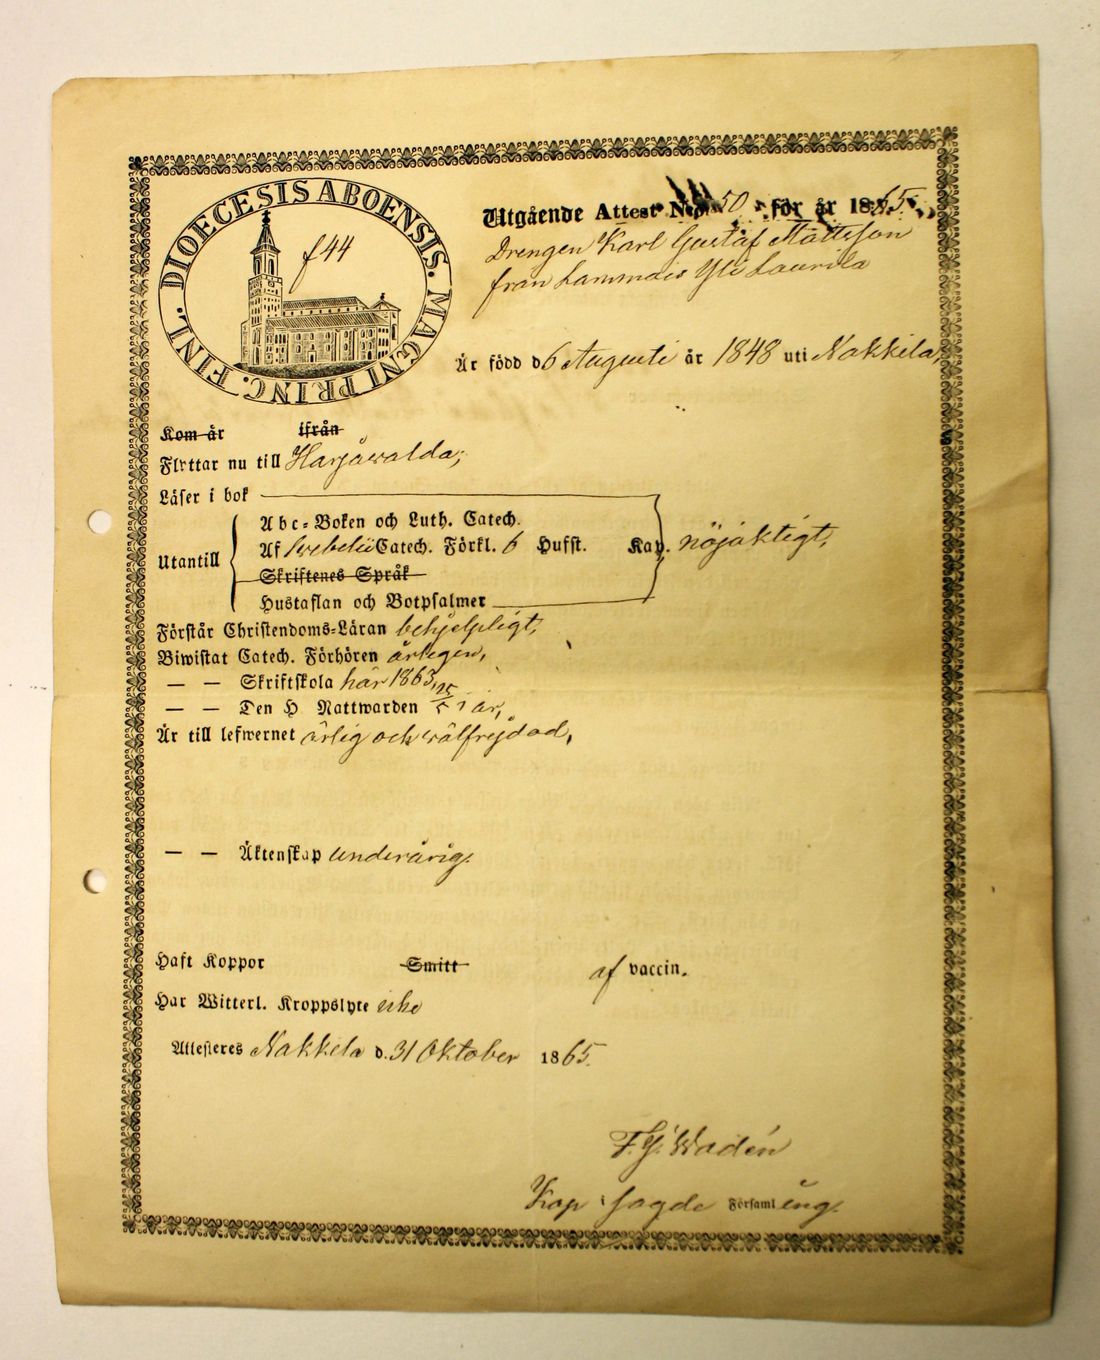 DIOECESIS ABOENSIS. MAGNI PRINC. FINL.
f 44
Utgående Attest N:o 50 för år 1865.
Drengen Karl Gustaf Mattsson
från Lammais Yli Laurila
Är född d. 6 Augusti år 1848 uti Nakkila,
Kom år ifrån
Flyttar nu till Harjåwalda,
Läser i bok
Utantill
Abc-Boken och Luth. Catech.
Af Svebelii Catech. Förkl. 6 Hufst. Kap. nöjaktigt,
Skriftenes Språk
Hustaflan och Botpsalmer
Förstår Christendoms-Läran behjelpligt,
Biwistat Catech. Förhören årligen,
— — Skriftskola här 1863,
— — Den H. Nattwarden i år,
Är till lefwernet ärlig och wälfrejdad,
— — Äktenskap underårig.
Haft Koppor Smitt af vaccin.
Har Witterl. Kroppslyte icke
Attesteres Nakkila d. 31 Oktober 1865.
F. G. Wadén
Kap i sagde Församling.